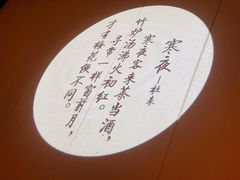 寒夜
—杜耒
寒夜客来茶当酒，
竹炉汤沸火初红。
寻常一样窗前月，
才有梅花便不同。